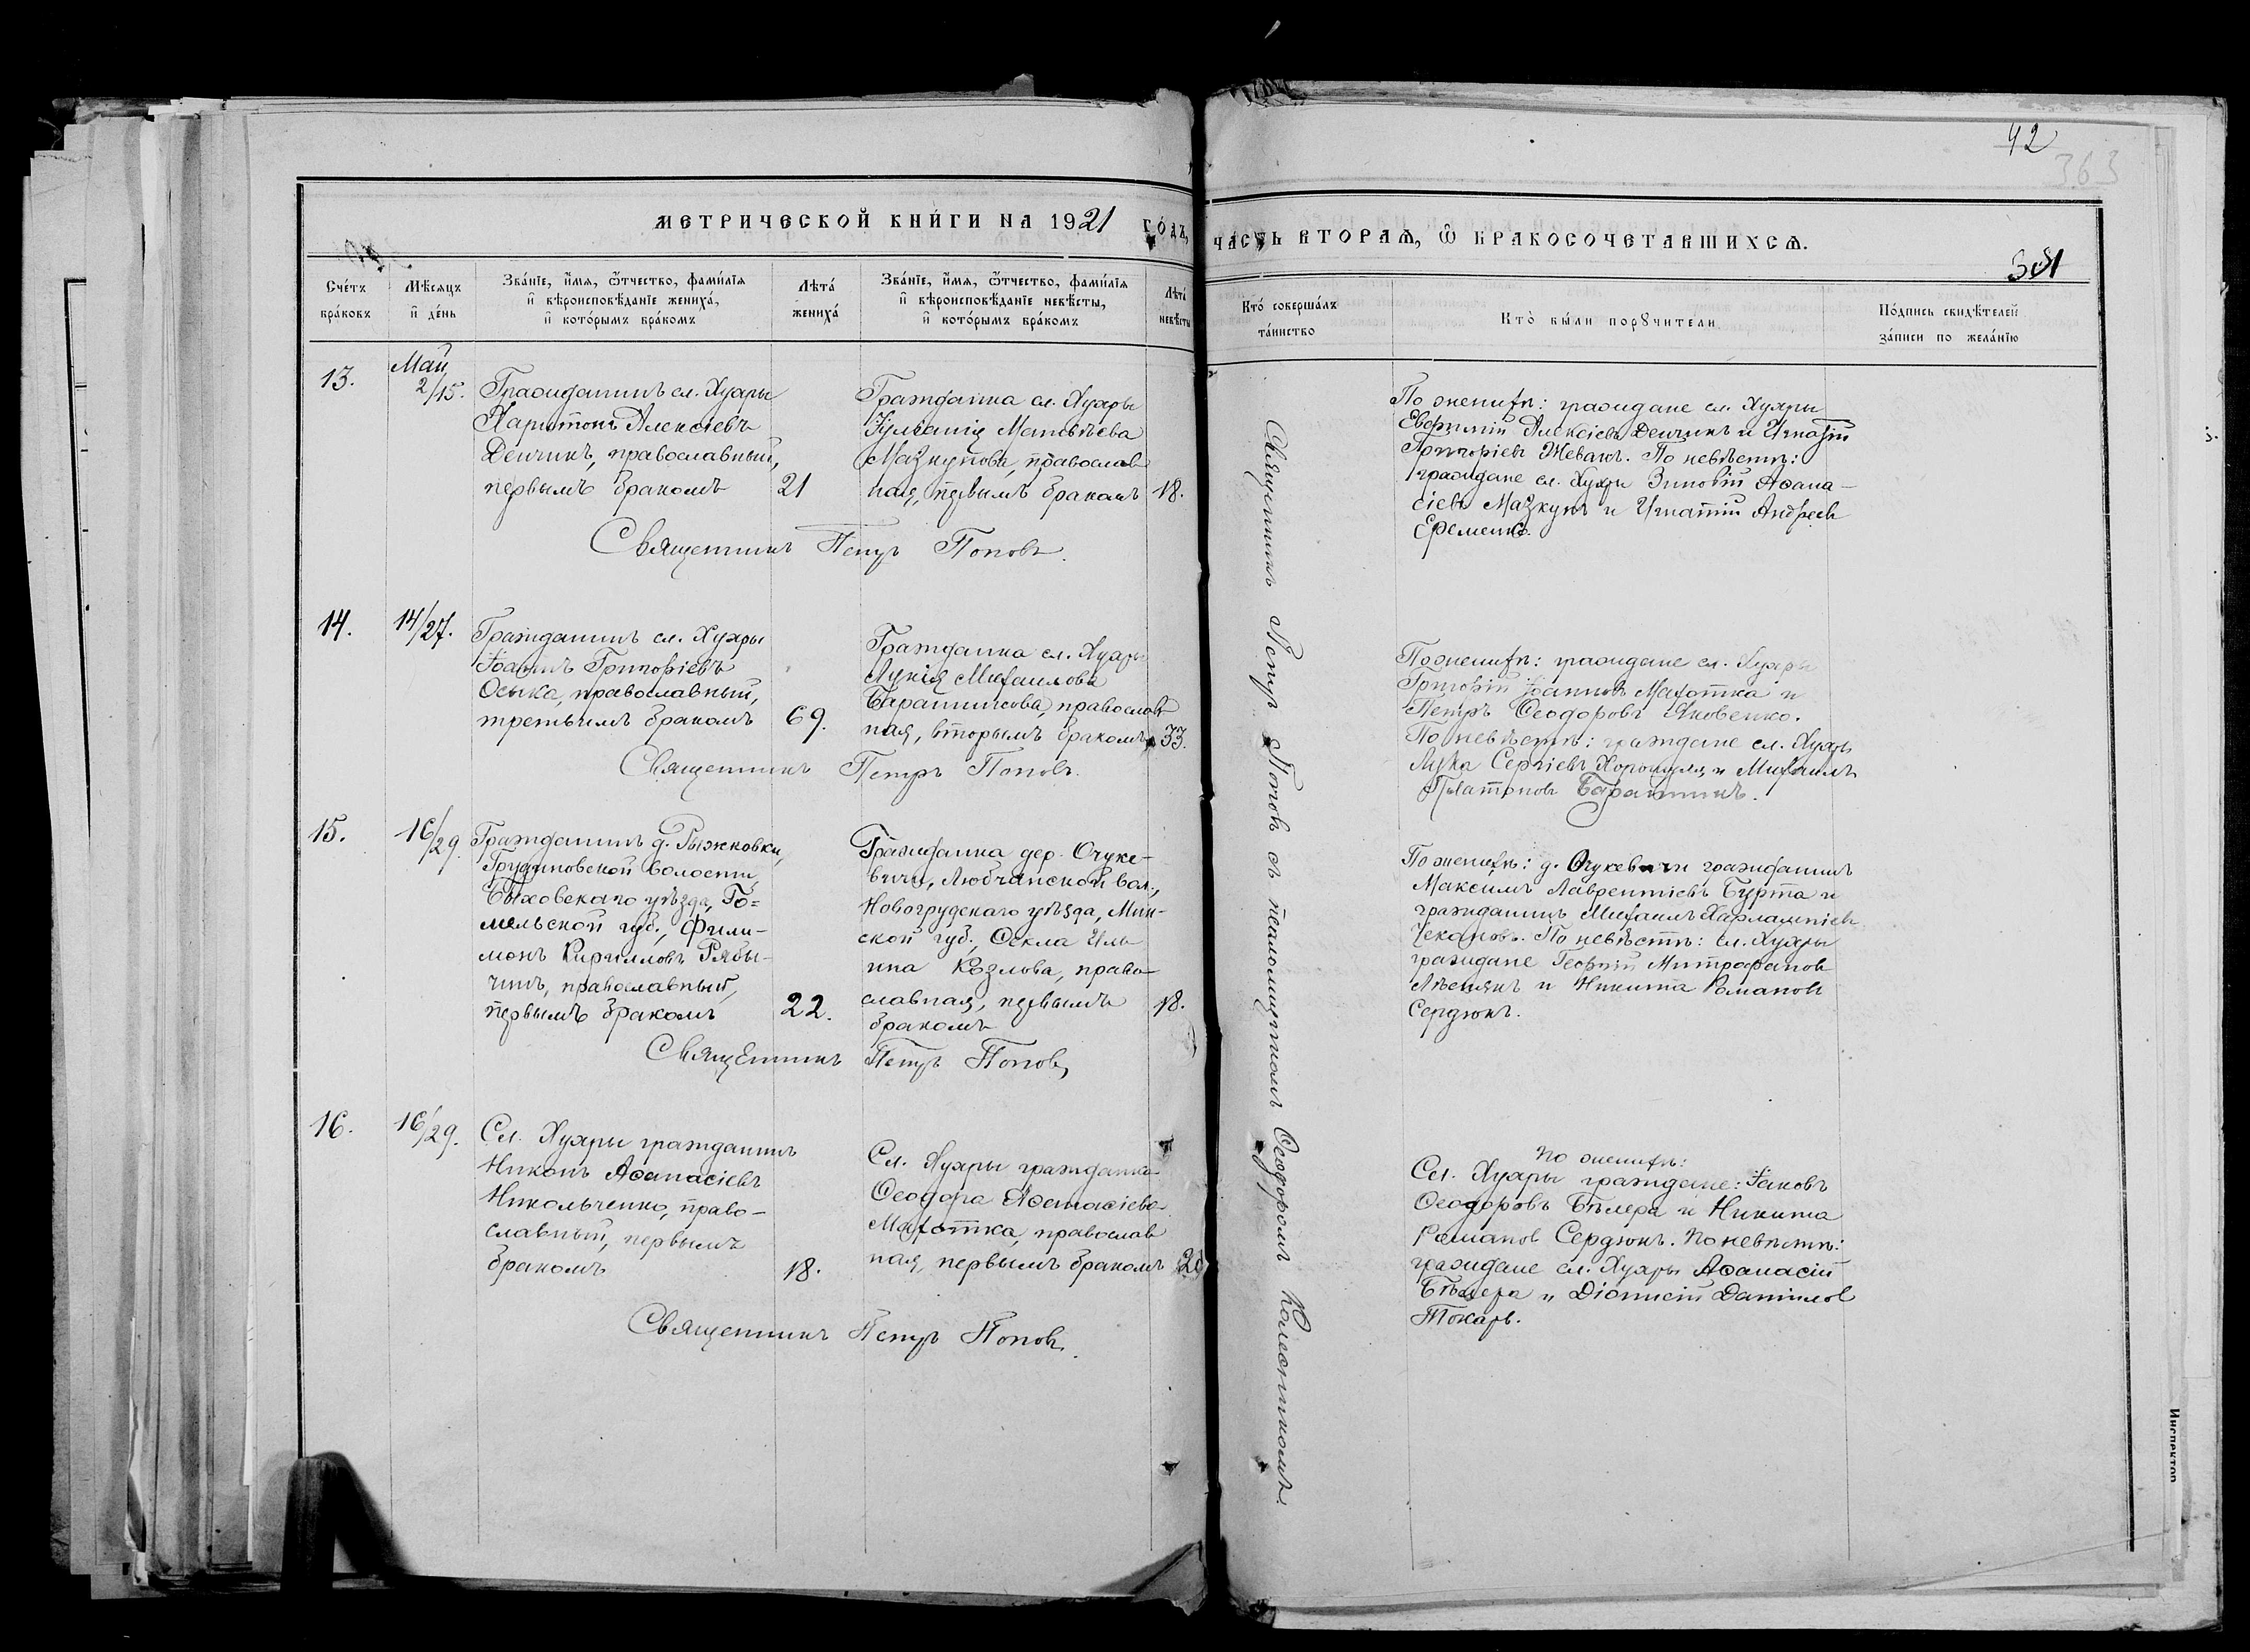 42
363
МЕТРИЧЕСКОЙ КНИ́ГИ НА 1921 ГО́ДЪ,
ЧАСТЬ ВТОРАѦ, Ѡ БРАКОСОЧЕТАВШИХСѦ.
381
Сче́тъ бра́ковъ
Мѣ́сяцъ и҆ де́нь
Зва́нїе, и҆́мѧ, ѻ҆́тчество, фами́лїѧ и҆ вѣроисповѣ́данїе жениха̀, и҆ кото́рымъ бра́комъ
Лѣта̀ жениха̀
Зва́нїе, и҆́мѧ, ѻ҆́тчество, фами́лїѧ и҆ вѣроисповѣ́данїе невѣ́сты, и҆ кото́рымъ бра́комъ
Лѣта̀ невѣ́сты
Кто̀ соверша́лъ та́инство
Кто̀ бы́ли порꙋчи́тели
По́дпись свидѣ́телей за́писи по жела́нїю
13.
Май
2/15.
Гражданинъ сл. Хухры
Харитонъ Алексіевъ
Денчикъ, православный,
первымъ бракомъ
21
Гражданка сл. Хухры
Іуліанія Матвѣева
Мазкунова, православ
ная, первымъ бракомъ
18.
По женихѣ: граждане сл. Хухры
Евфимій Алексіевъ Денчикъ и Игнатій
Григоріевъ Жевакъ. По невѣстѣ:
граждане сл. Хухры Зиновій Аѳана-
сіевъ Мазкунъ и Игнатій Андреевъ
Еременко.
Священникъ Петръ Поповъ.
14.
14/27.
Гражданинъ сл. Хухры
Іоаннъ Григоріевъ
Осыка, православный,
третьимъ бракомъ
69.
Гражданка сл. Хухры
Лукія Михаилова
Баранникова, православ
ная, вторымъ бракомъ
33.
По женихѣ: граждане сл. Хухры
Григорій Іоанновъ Махотка и
Петръ Ѳеодоровъ Яковенко.
По невѣстѣ: граждане сл. Хухры
Лука Сергіевъ и Михаилъ
Платоновъ Баранникъ.
Священникъ Петръ Поповъ.
15.
16/29.
Гражданинъ д. Рыжковки,
Грудиновской волости,
Быховскаго уѣзда, Го=
мельской губ., Фили-
монъ Кирилловъ Рябы-
чинъ, православный,
первымъ бракомъ
22.
Гражданка дер. Очуке-
вичи, Любчанской вол.,
Новогрудскаго уѣзда, Мин-
ской губ., Ѳекла Иль
ина Козлова, право-
славная, первымъ
бракомъ
18.
По женихѣ: д. Очукевичи гражданинъ
Максимъ Лаврентіевъ Бурта и
гражданинъ Михаилъ Харлампіевъ
Чекановъ. По невѣстѣ: сл. Хухры
граждане Георгій Митрофановъ
Лѣснякъ и Никита Романовъ
Сердюкъ.
Священникъ Петръ Поповъ
16.
16/29.
Сл. Хухры гражданинъ
Никонъ Аѳанасіевъ
Никольченко, право-
славный, первымъ
бракомъ
18.
Сл. Хухры гражданка
Ѳеодора Аѳанасіева
Махотка, православ
ная, первымъ бракомъ
По женихѣ:
Сл. Хухры граждане: Іаковъ
Ѳеодоровъ Бѣлера и Никита
Романовъ Сердюкъ. По невѣстѣ:
граждане сл. Хухры Аѳанасій
Бѣлера и Діонисій Даниилов
Токарь.
Священникъ Петръ Поповъ.
Священникъ Петръ Поповъ съ псаломщикомъ Ѳеодоромъ Колесниковымъ.
Инспектор